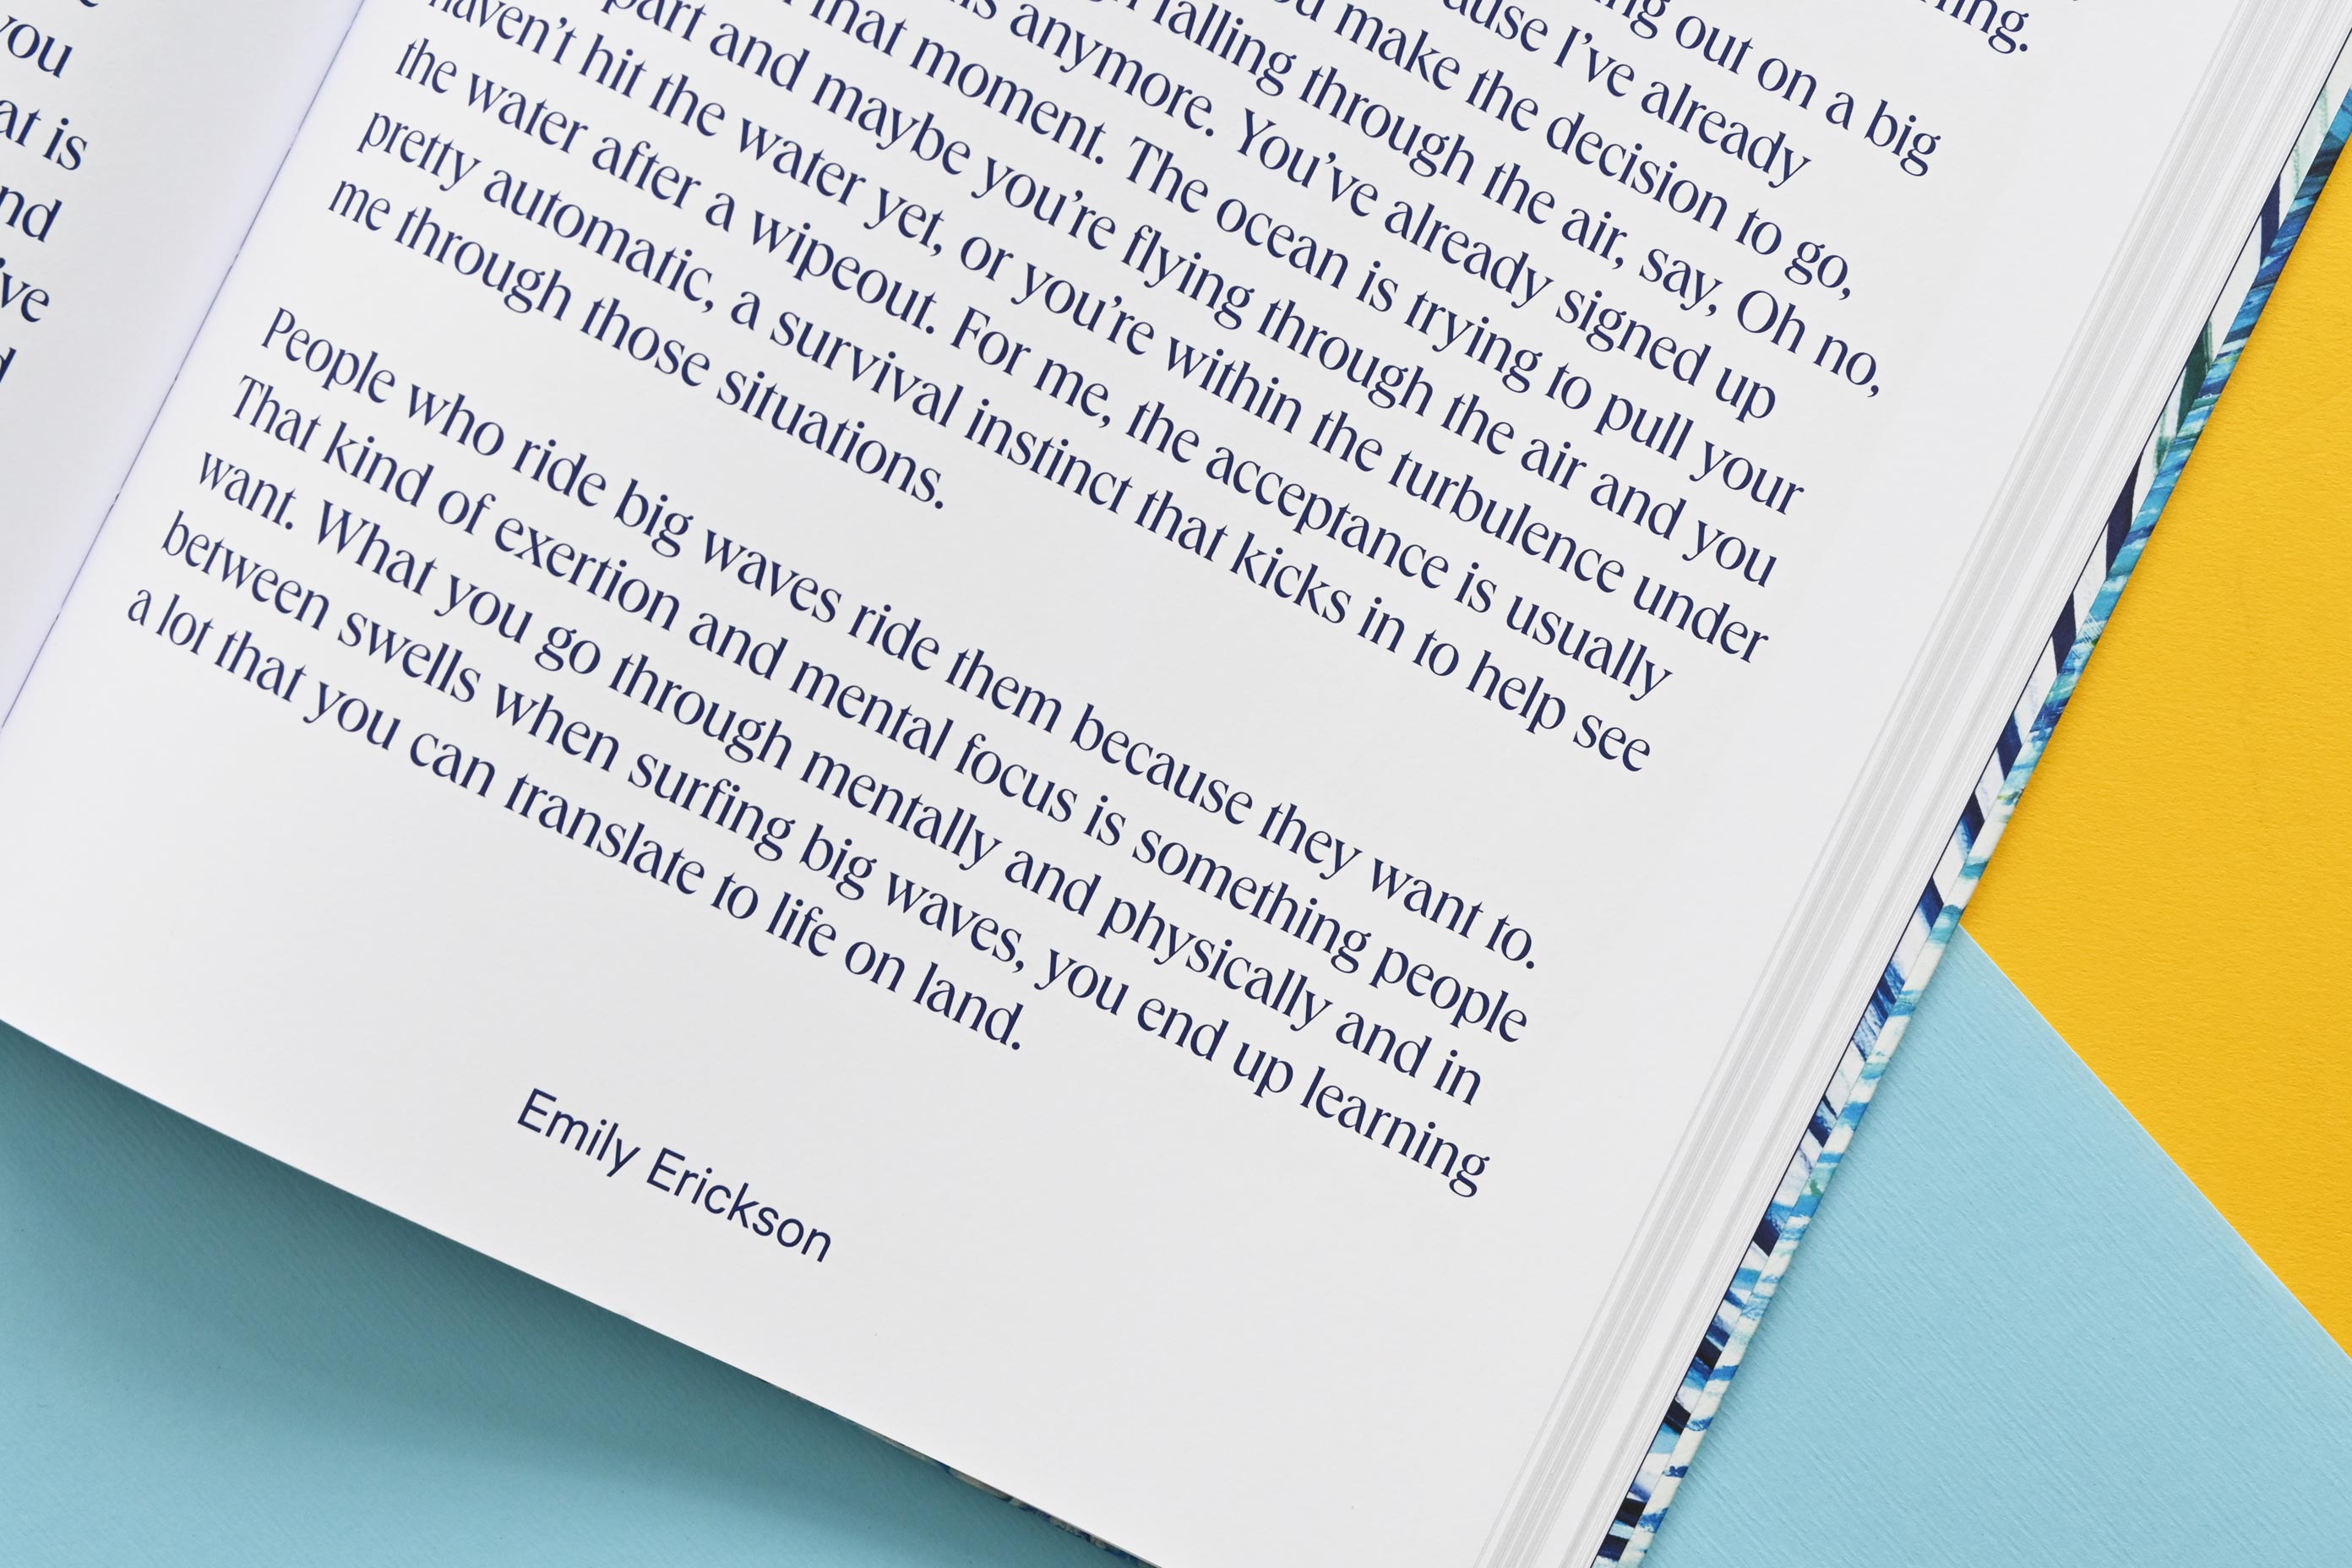 you
at is
nd
've
out on a big
I've already
make the decision to go,
falling through the air, say, Oh no,
anymore. You've already signed up
that moment. The ocean is trying to pull your
part and maybe you're flying through the air and you
haven't hit the water yet, or you're within the turbulence under
the water after a wipeout. For me, the acceptance is usually
pretty automatic, a survival instinct that kicks in to help see
me through those situations.
People who ride big waves ride them because they want to.
That kind of exertion and mental focus is something people
want. What you go through mentally and physically and in
between swells when surfing big waves, you end up learning
a lot that you can translate to life on land.
Emily Erickson